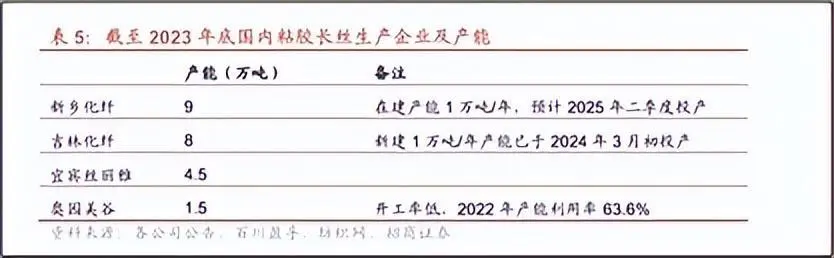 表 5：截至 2023 年底国内粘胶长丝生产企业及产能
产能（万吨） 备注
新乡化纤 9 在建产能 1 万吨/年，预计 2025 年二季度投产
吉林化纤 8 新建 1 万吨/年产能已于 2024 年 3 月初投产
宜宾丝丽雅 4.5
奥园美谷 1.5 开工率低，2022 年产能利用率 63.6%
资料来源：各公司公告，百川盈孚，纺织网，招商证券